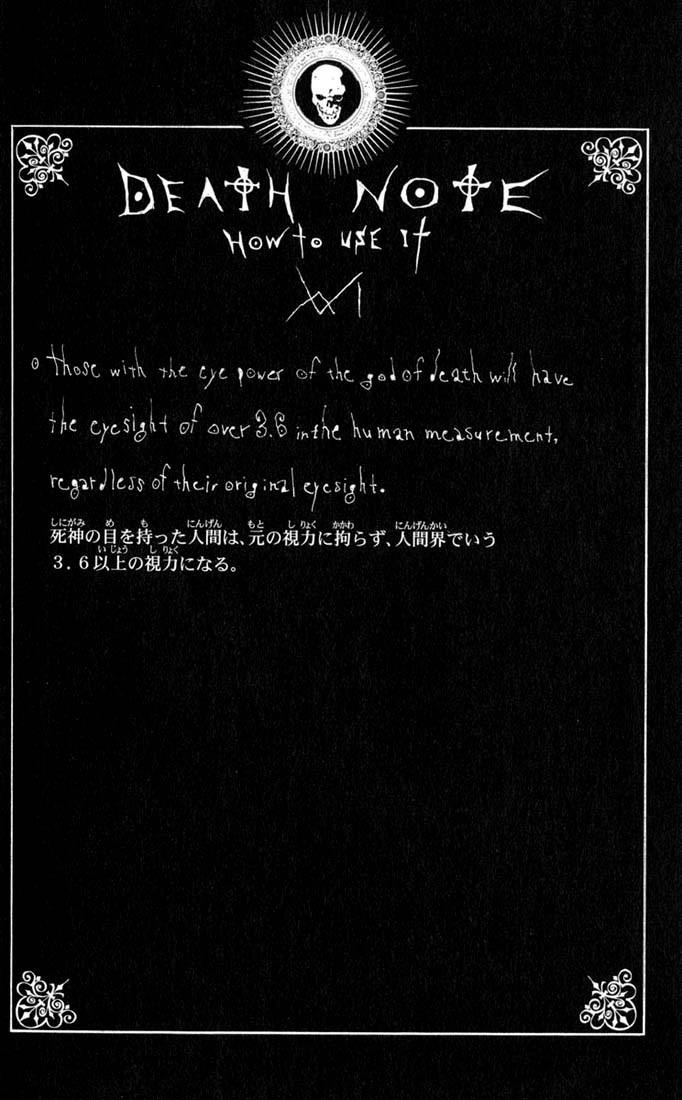 DEATH NOTE
HOW to USE It
XXI
o those with the eye power of the god of death will have
the eyesight of over 3.6 in the human measurement,
regardless of their original eyesight.
しにがみ め も にんげん もと しりょく かかわ にんげんかい
死神の目を持った人間は、元の視力に拘らず、人間界でいう
いじょう しりょく
3.6以上の視力になる。